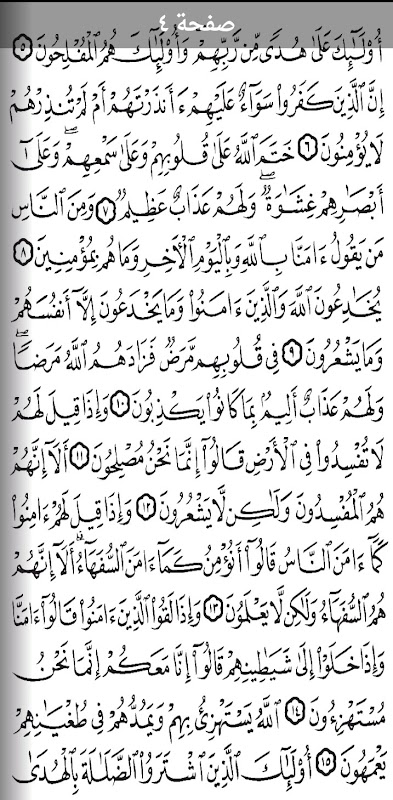 صفحة ٤
أُوْلَٰٓئِكَ عَلَىٰ هُدًى مِّن رَّبِّهِمْ وَأُوْلَٰٓئِكَ هُمُ ٱلْمُفْلِحُونَ ٥
إِنَّ ٱلَّذِينَ كَفَرُوا۟ سَوَآءٌ عَلَيْهِمْ ءَأَنذَرْتَهُمْ أَمْ لَمْ تُنذِرْهُمْ
لَا يُؤْمِنُونَ ٦ خَتَمَ ٱللَّهُ عَلَىٰ قُلُوبِهِمْ وَعَلَىٰ سَمْعِهِمْ ۖ وَعَلَىٰٓ
أَبْصَٰرِهِمْ غِشَٰوَةٌ ۖ وَلَهُمْ عَذَابٌ عَظِيمٌ ٧ وَمِنَ ٱلنَّاسِ
مَن يَقُولُ ءَامَنَّا بِٱللَّهِ وَبِٱلْيَوْمِ ٱلْأَخِرِ وَمَا هُم بِمُؤْمِنِينَ ٨
يُخَٰدِعُونَ ٱللَّهَ وَٱلَّذِينَ ءَامَنُوا۟ وَمَا يَخْدَعُونَ إِلَّآ أَنفُسَهُمْ
وَمَا يَشْعُرُونَ ٩ فِى قُلُوبِهِم مَّرَضٌ فَزَادَهُمُ ٱللَّهُ مَرَضًا ۖ
وَلَهُمْ عَذَابٌ أَلِيمٌۢ بِمَا كَانُوا۟ يَكْذِبُونَ ١٠ وَإِذَا قِيلَ لَهُمْ
لَا تُفْسِدُوا۟ فِى ٱلْأَرْضِ قَالُوٓا۟ إِنَّمَا نَحْنُ مُصْلِحُونَ ١١ أَلَآ إِنَّهُمْ
هُمُ ٱلْمُفْسِدُونَ وَلَٰكِن لَّا يَشْعُرُونَ ١٢ وَإِذَا قِيلَ لَهُمْ ءَامِنُوا۟
كَمَآ ءَامَنَ ٱلنَّاسُ قَالُوٓا۟ أَنُؤْمِنُ كَمَآ ءَامَنَ ٱلسُّفَهَآءُ ۗ أَلَآ إِنَّهُمْ
هُمُ ٱلسُّفَهَآءُ وَلَٰكِن لَّا يَعْلَمُونَ ١٣ وَإِذَا لَقُوا۟ ٱلَّذِينَ ءَامَنُوا۟ قَالُوٓا۟ ءَامَنَّا
وَإِذَا خَلَوْا۟ إِلَىٰ شَيَٰطِينِهِمْ قَالُوٓا۟ إِنَّا مَعَكُمْ إِنَّمَا نَحْنُ
مُسْتَهْزِءُونَ ١٤ ٱللَّهُ يَسْتَهْزِئُ بِهِمْ وَيَمُدُّهُمْ فِى طُغْيَٰنِهِمْ
يَعْمَهُونَ ١٥ أُوْلَٰٓئِكَ ٱلَّذِينَ ٱشْتَرَوُا۟ ٱلضَّلَٰلَةَ بِٱلْهُدَىٰ